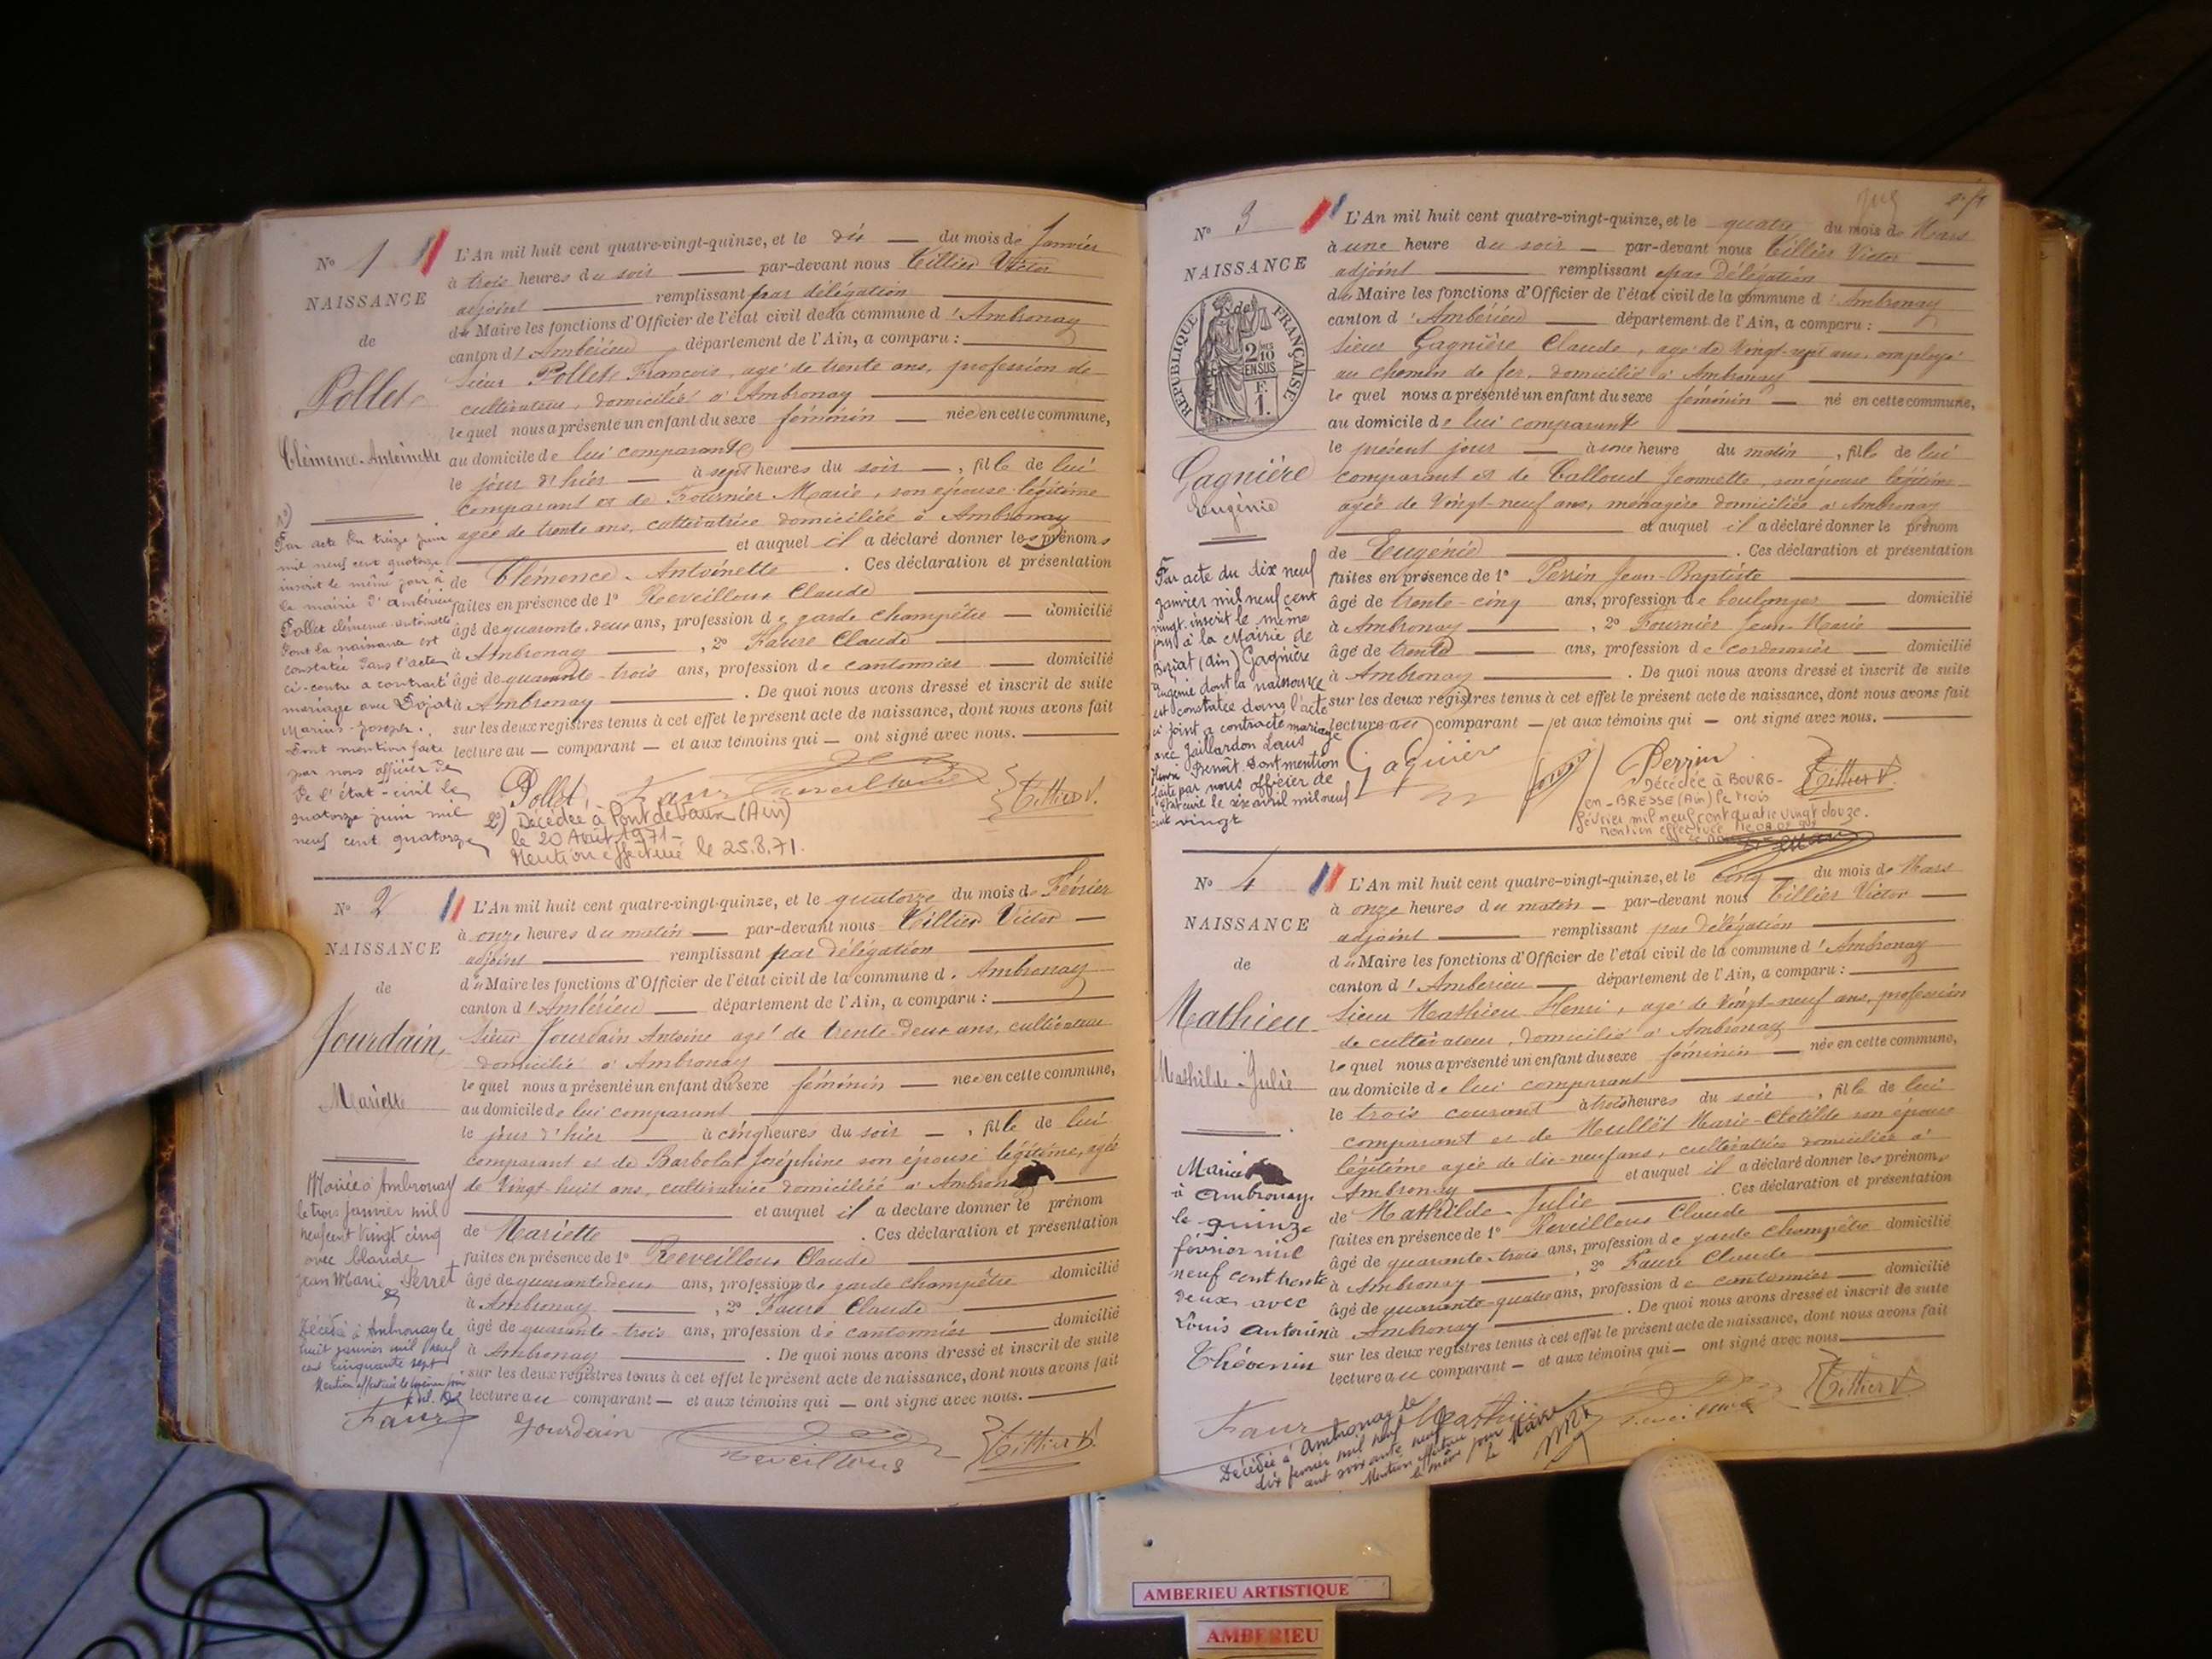 N° 1
NAISSANCE
de
Pollet
Clémence-Antoinette
L'An mil huit cent quatre-vingt-quinze, et le dix — du mois de Janvier
à trois heures du soir — par-devant nous Tillier Victor
adjoint — remplissant par délégation
du Maire les fonctions d'Officier de l'état civil de la commune d'Ambronay
canton d'Ambérieu département de l'Ain, a comparu :
Sieur Pollet François, agé de trente ans, profession de
cultivateur, domicilié à Ambronay
lequel nous a présenté un enfant du sexe féminin — née en cette commune,
au domicile de lui comparant
le jour d'hier — à sept heures du soir —, fille de lui
comparant et de Fournier Marie, son épouse légitime
agée de trente ans, cultivatrice domiciliée à Ambronay
et auquel il a déclaré donner les prénoms
de Clémence-Antoinette. Ces déclaration et présentation
faites en présence de 1° Reveilloux Claude
âgé de quarante-deux ans, profession de garde champêtre — domicilié
à Ambronay —, 2° Faure Claude
âgé de quarante-trois ans, profession de cantonnier — domicilié
à Ambronay. De quoi nous avons dressé et inscrit de suite
sur les deux registres tenus à cet effet le présent acte de naissance, dont nous avons fait
lecture au — comparant — et aux témoins qui — ont signé avec nous.
1°)
Par acte du treize juin
mil neuf cent quatorze
inscrit le même jour à
la mairie d'Ambérieu
Pollet clémence-antoinette
dont la naissance est
constatée dans l'acte
ci-contre a contracté
mariage avec Pojat
Marius-Joseph.
Dont mention faite
par nous officier de
de l'état-civil le
quatorze juin mil
neuf cent quatorze
Pollet Faur Reveilloux Tillier V.
2°) Décédée à Pont de Vaux (Ain)
le 20 Août 1971-
Mention effectuée le 25.8.71.
N° 2
NAISSANCE
de
Jourdain
Mariette
L'An mil huit cent quatre-vingt-quinze, et le quatorze du mois de Février
à onze heures du matin — par-devant nous Tillier Victor —
adjoint — remplissant par délégation
du Maire les fonctions d'Officier de l'état civil de la commune d'Ambronay
canton d'Ambérieu — département de l'Ain, a comparu :
Sieur Jourdain Antoine agé de trente-deux ans, cultivateur
domicilié à Ambronay
lequel nous a présenté un enfant du sexe féminin — née en cette commune,
au domicile de lui comparant
le jour d'hier — à cinq heures du soir —, fille de lui
comparant et de Barbolat Joséphine son épouse légitime, agée
de vingt-huit ans, cultivatrice domiciliée à Ambronay
et auquel il a déclaré donner le prénom
de Mariette. Ces déclaration et présentation
faites en présence de 1° Reveilloux Claude
âgé de quarante deux ans, profession de garde champêtre domicilié
à Ambronay —, 2° Faure Claude
âgé de quarante-trois ans, profession de cantonnier — domicilié
à Ambronay. De quoi nous avons dressé et inscrit de suite
sur les deux registres tenus à cet effet le présent acte de naissance, dont nous avons fait
lecture au comparant — et aux témoins qui — ont signé avec nous.
Mariée à Ambronay
le trois janvier mil
neuf cent vingt cinq
avec Claude
Jean Marie Perret
Décédée à Ambronay le
huit janvier mil neuf
cent cinquante sept
Mention effectuée le
Faur Jourdain Reveilloux Tillier V.
N° 3
NAISSANCE
RÉPUBLIQUE FRANÇAISE
2 10
EN SUS
F.
1.
Gagnière
Eugénie
L'An mil huit cent quatre-vingt-quinze, et le quatre du mois de Mars
à une heure du soir — par-devant nous Tillier Victor
adjoint — remplissant par délégation
du Maire les fonctions d'Officier de l'état civil de la commune d'Ambronay
canton d'Ambérieu — département de l'Ain, a comparu :
Sieur Gagnière Claude, agé de vingt-sept ans, employé
au chemin de fer, domicilié à Ambronay
lequel nous a présenté un enfant du sexe féminin — né en cette commune,
au domicile de lui comparant
le présent jour — à une heure du matin, fille de lui
comparant et de Talloud Jeannette, son épouse légitime
agée de vingt-neuf ans, ménagère domiciliée à Ambronay
et auquel il a déclaré donner le prénom
de Eugénie. Ces déclaration et présentation
faites en présence de 1° Perrin Jean-Baptiste
âgé de trente-cinq ans, profession de boulanger — domicilié
à Ambronay, 2° Fournier Jean-Marie
âgé de trente ans, profession de cordonnier — domicilié
à Ambronay. De quoi nous avons dressé et inscrit de suite
sur les deux registres tenus à cet effet le présent acte de naissance, dont nous avons fait
lecture au comparant — et aux témoins qui — ont signé avec nous.
Par acte du dix neuf
janvier mil neuf cent
vingt inscrit le même
jour à la Mairie de
Beziat (Ain) Gagnière
Eugénie dont la naissance
est constatée dans l'acte
ci joint a contracté mariage
avec Gaillardon Louis
Benoit. Dont mention
faite par nous officier de
l'Etat civil le six avril mil neuf
cent vingt
Gagnière Perrin Tillier V.
Décédée à BOURG-
en-BRESSE (Ain) le trois
février mil neuf cent quatre vingt douze.
Mention effectuée
N° 4
NAISSANCE
de
Mathieu
Mathilde-Julie
L'An mil huit cent quatre-vingt-quinze, et le cinq du mois de Mars
à onze heures du matin — par-devant nous Tillier Victor —
adjoint — remplissant par délégation
du Maire les fonctions d'Officier de l'état civil de la commune d'Ambronay
canton d'Ambérieu — département de l'Ain, a comparu :
Sieur Mathieu Henri, agé de vingt-neuf ans, profession
de cultivateur, domicilié à Ambronay
lequel nous a présenté un enfant du sexe féminin — née en cette commune,
au domicile de lui comparant
le trois courant à trois heures du soir, fille de lui
comparant et de Marie-Clotilde son épouse
légitime agée de dix-neuf ans, cultivatrice domiciliée à
Ambronay et auquel il a déclaré donner les prénoms
de Mathilde-Julie. Ces déclaration et présentation
faites en présence de 1° Reveilloux Claude
âgé de quarante-trois ans, profession de garde champêtre domicilié
à Ambronay, 2° Faure Claude
âgé de quarante-quatre ans, profession de cantonnier — domicilié
à Ambronay. De quoi nous avons dressé et inscrit de suite
sur les deux registres tenus à cet effet le présent acte de naissance, dont nous avons fait
lecture au comparant — et aux témoins qui — ont signé avec nous.
Mariée
à Ambronay.
le quinze
février mil
neuf cent trente
deux avec
Louis Antonin
Thévenin
Faur Mathieu Reveilloux Tillier V.
Décédée à Ambronay le
dix février mil neuf
cent soixante neuf
Mention effectuée
le même jour
Le Maire
AMBERIEU ARTISTIQUE
AMBERIEU